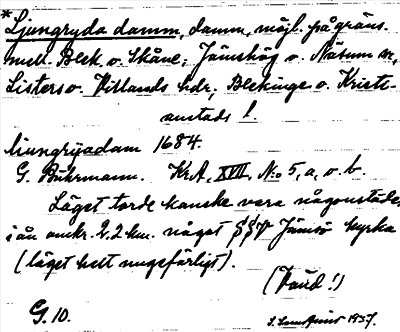 *Ljungryda damm, damm, möjl. på gräns.
mell. Blek. o. Skåne; Jämshög o. Näsum sn,
Listers o. Villands hdr; Blekinge o. Kristi-
anstads l.
liungryadam 1684.
G. Buhrmann. KrA, XVII, No 5, a, o. b.
Läget torde kanske vara någonstädes
i ån omkr. 2,2 km. något Jämsö kyrka
(läget helt ungefärligt).
(Vaud!)
G. 10.
1937.